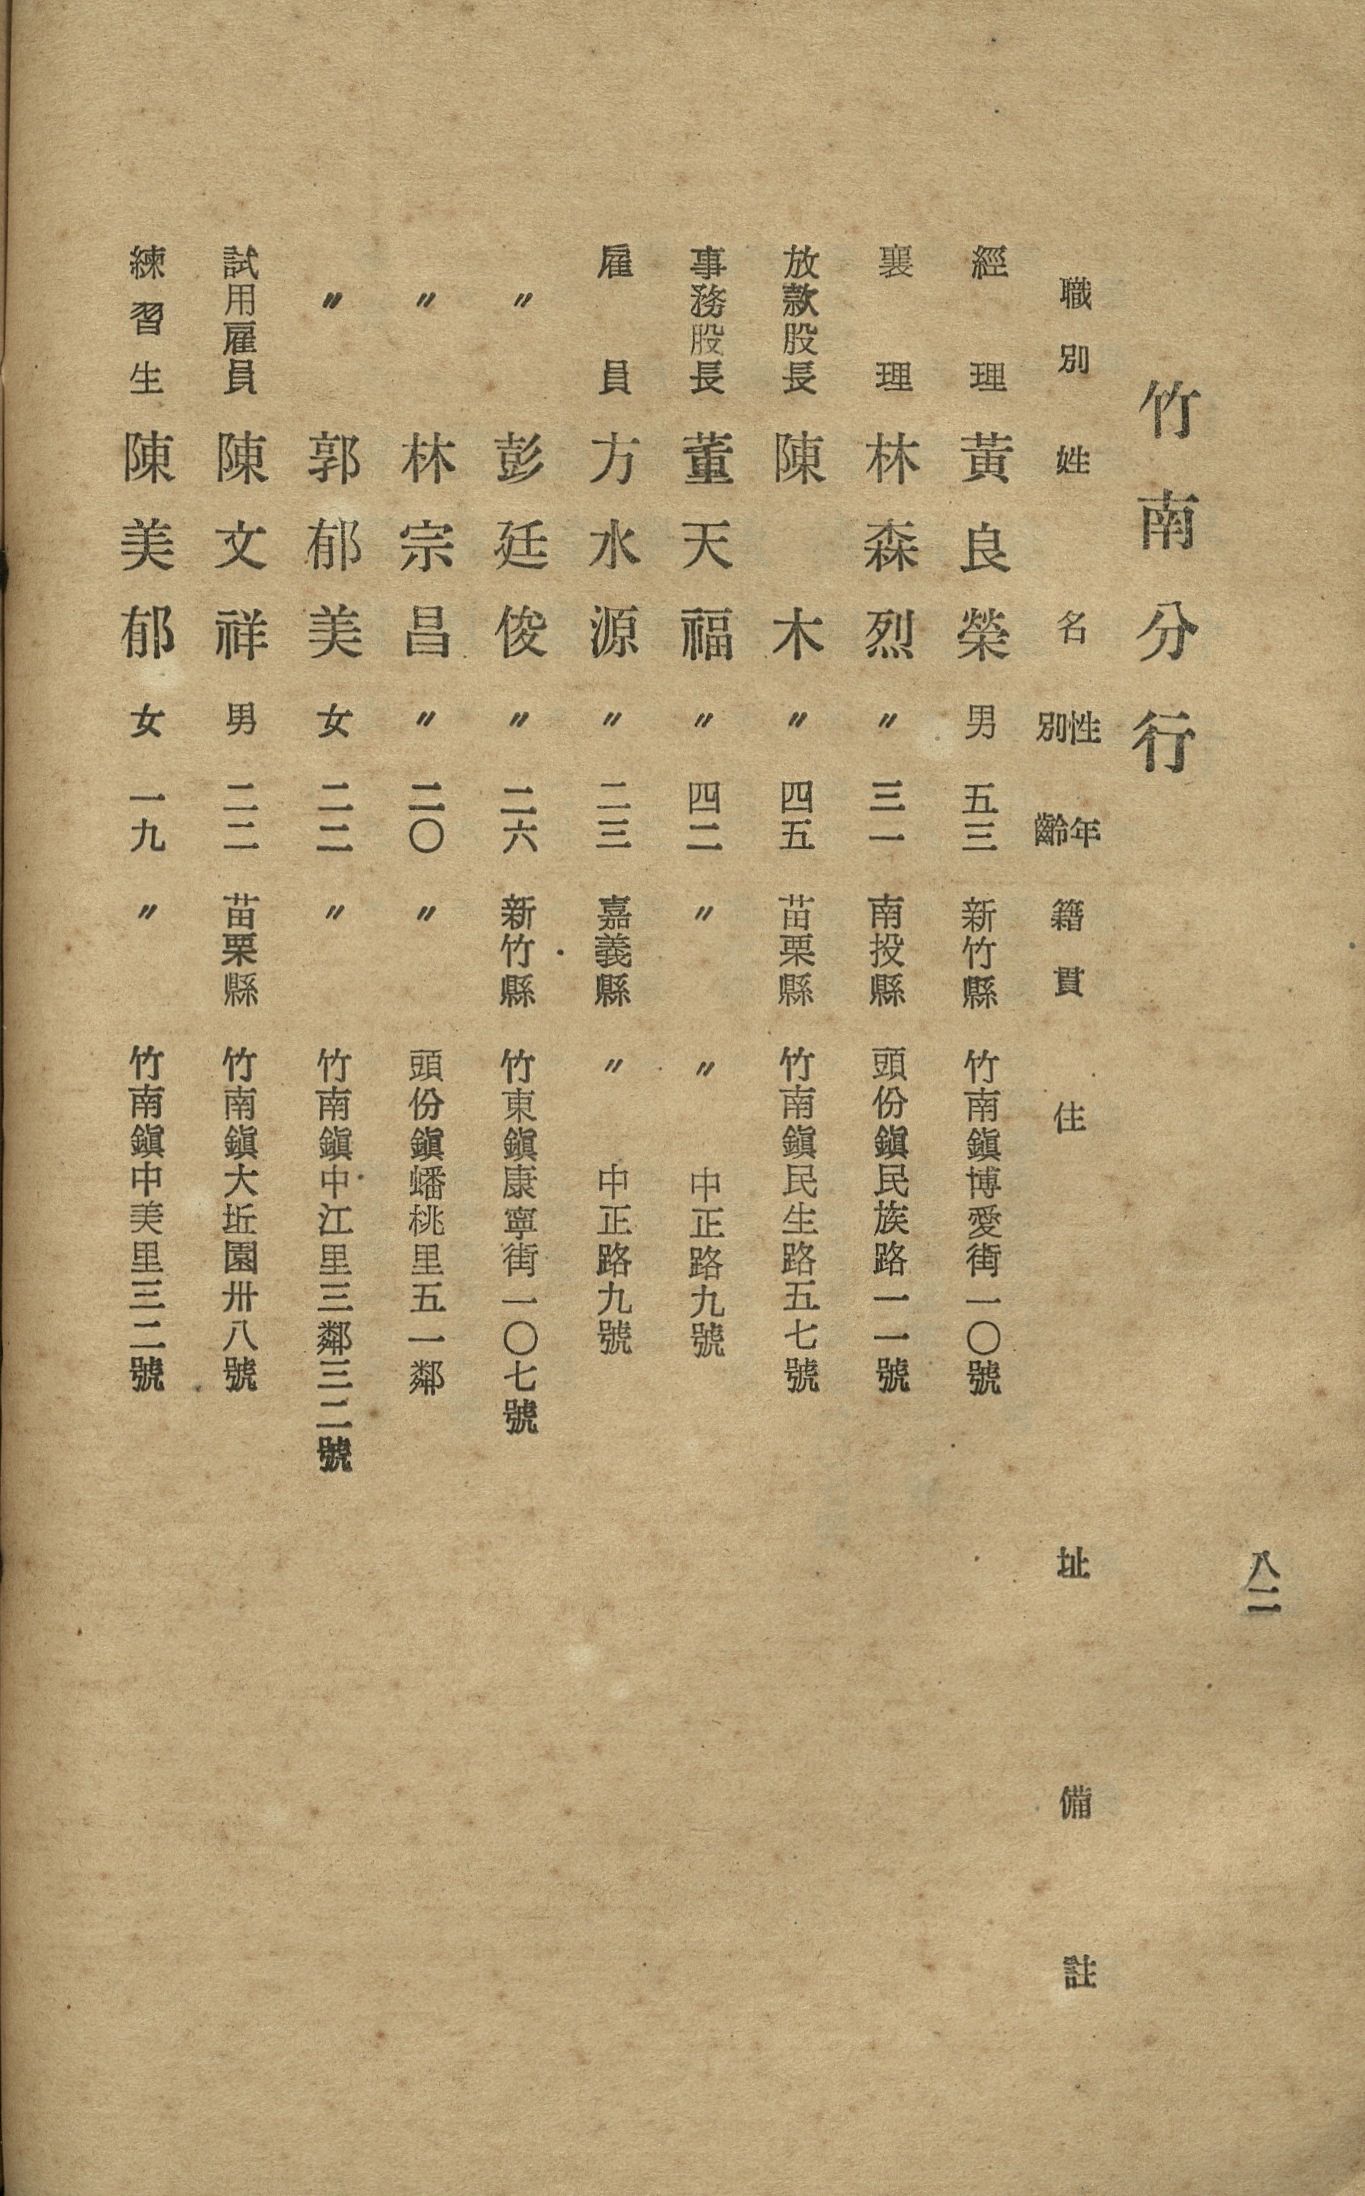 八二
竹南分行
職別 姓名 性別 年齡 籍貫 住址 備註
經理 黃良榮 男 五三 新竹縣 竹南鎭博愛街一〇號
襄理 林森烈 〃 三一 南投縣 頭份鎭民族路一一號
放款股長 陳木 〃 四五 苗栗縣 竹南鎭民生路五七號
事務股長 董天福 〃 四二 〃 〃 中正路九號
雇員 方水源 〃 二三 嘉義縣 〃 中正路九號
〃 彭廷俊 〃 二六 新竹縣 竹東鎭康寧街一〇七號
〃 林宗昌 〃 二〇 〃 頭份鎭蟠桃里五一鄰
〃 郭郁美 女 二二 〃 竹南鎭中江里三鄰三二號
試用雇員 陳文祥 男 二二 苗栗縣 竹南鎭大坵園卅八號
練習生 陳美郁 女 一九 〃 竹南鎭中美里三二號